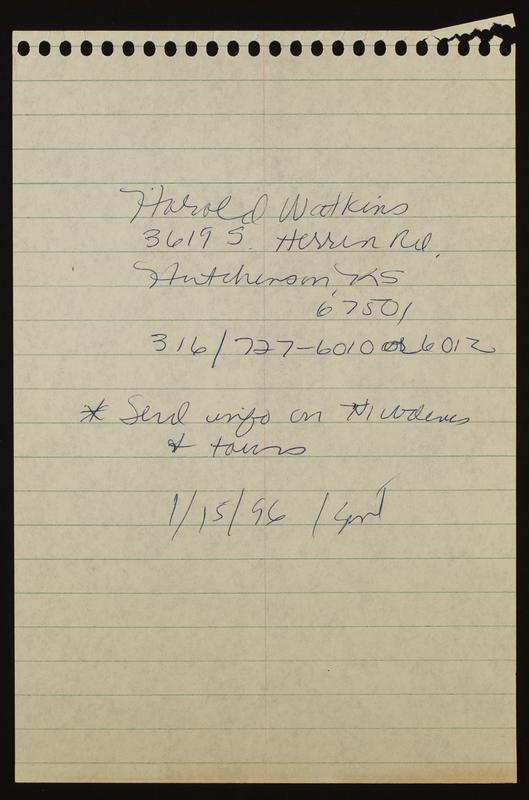 Harold Watkins
3619 S. Herren Rd.
Hutchinson, KS
67501
316/727-6010 or 6012
* Send info on
& tours
1/15/96 /